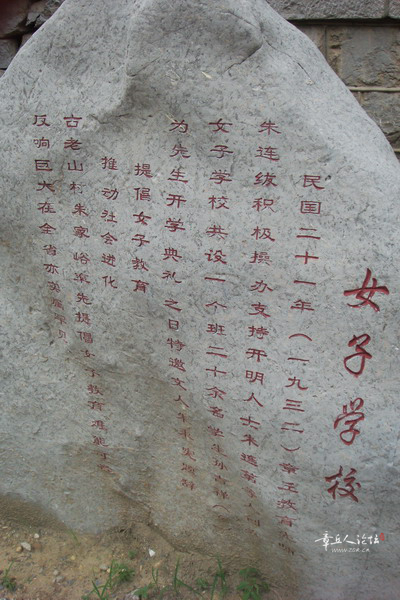 女子学校
民国二十一年（一九三二）章丘教育
朱连绂积极操办支持开明人士朱逸
女子学校共设一个班二十余名学生孙吉祥（
为先生开学典礼之日特邀文人
提倡女子教育
推动社会进化
古老山村朱家峪率先提倡女子教育
反响巨大在全省亦
章丘人论坛
www.ZQR.CN